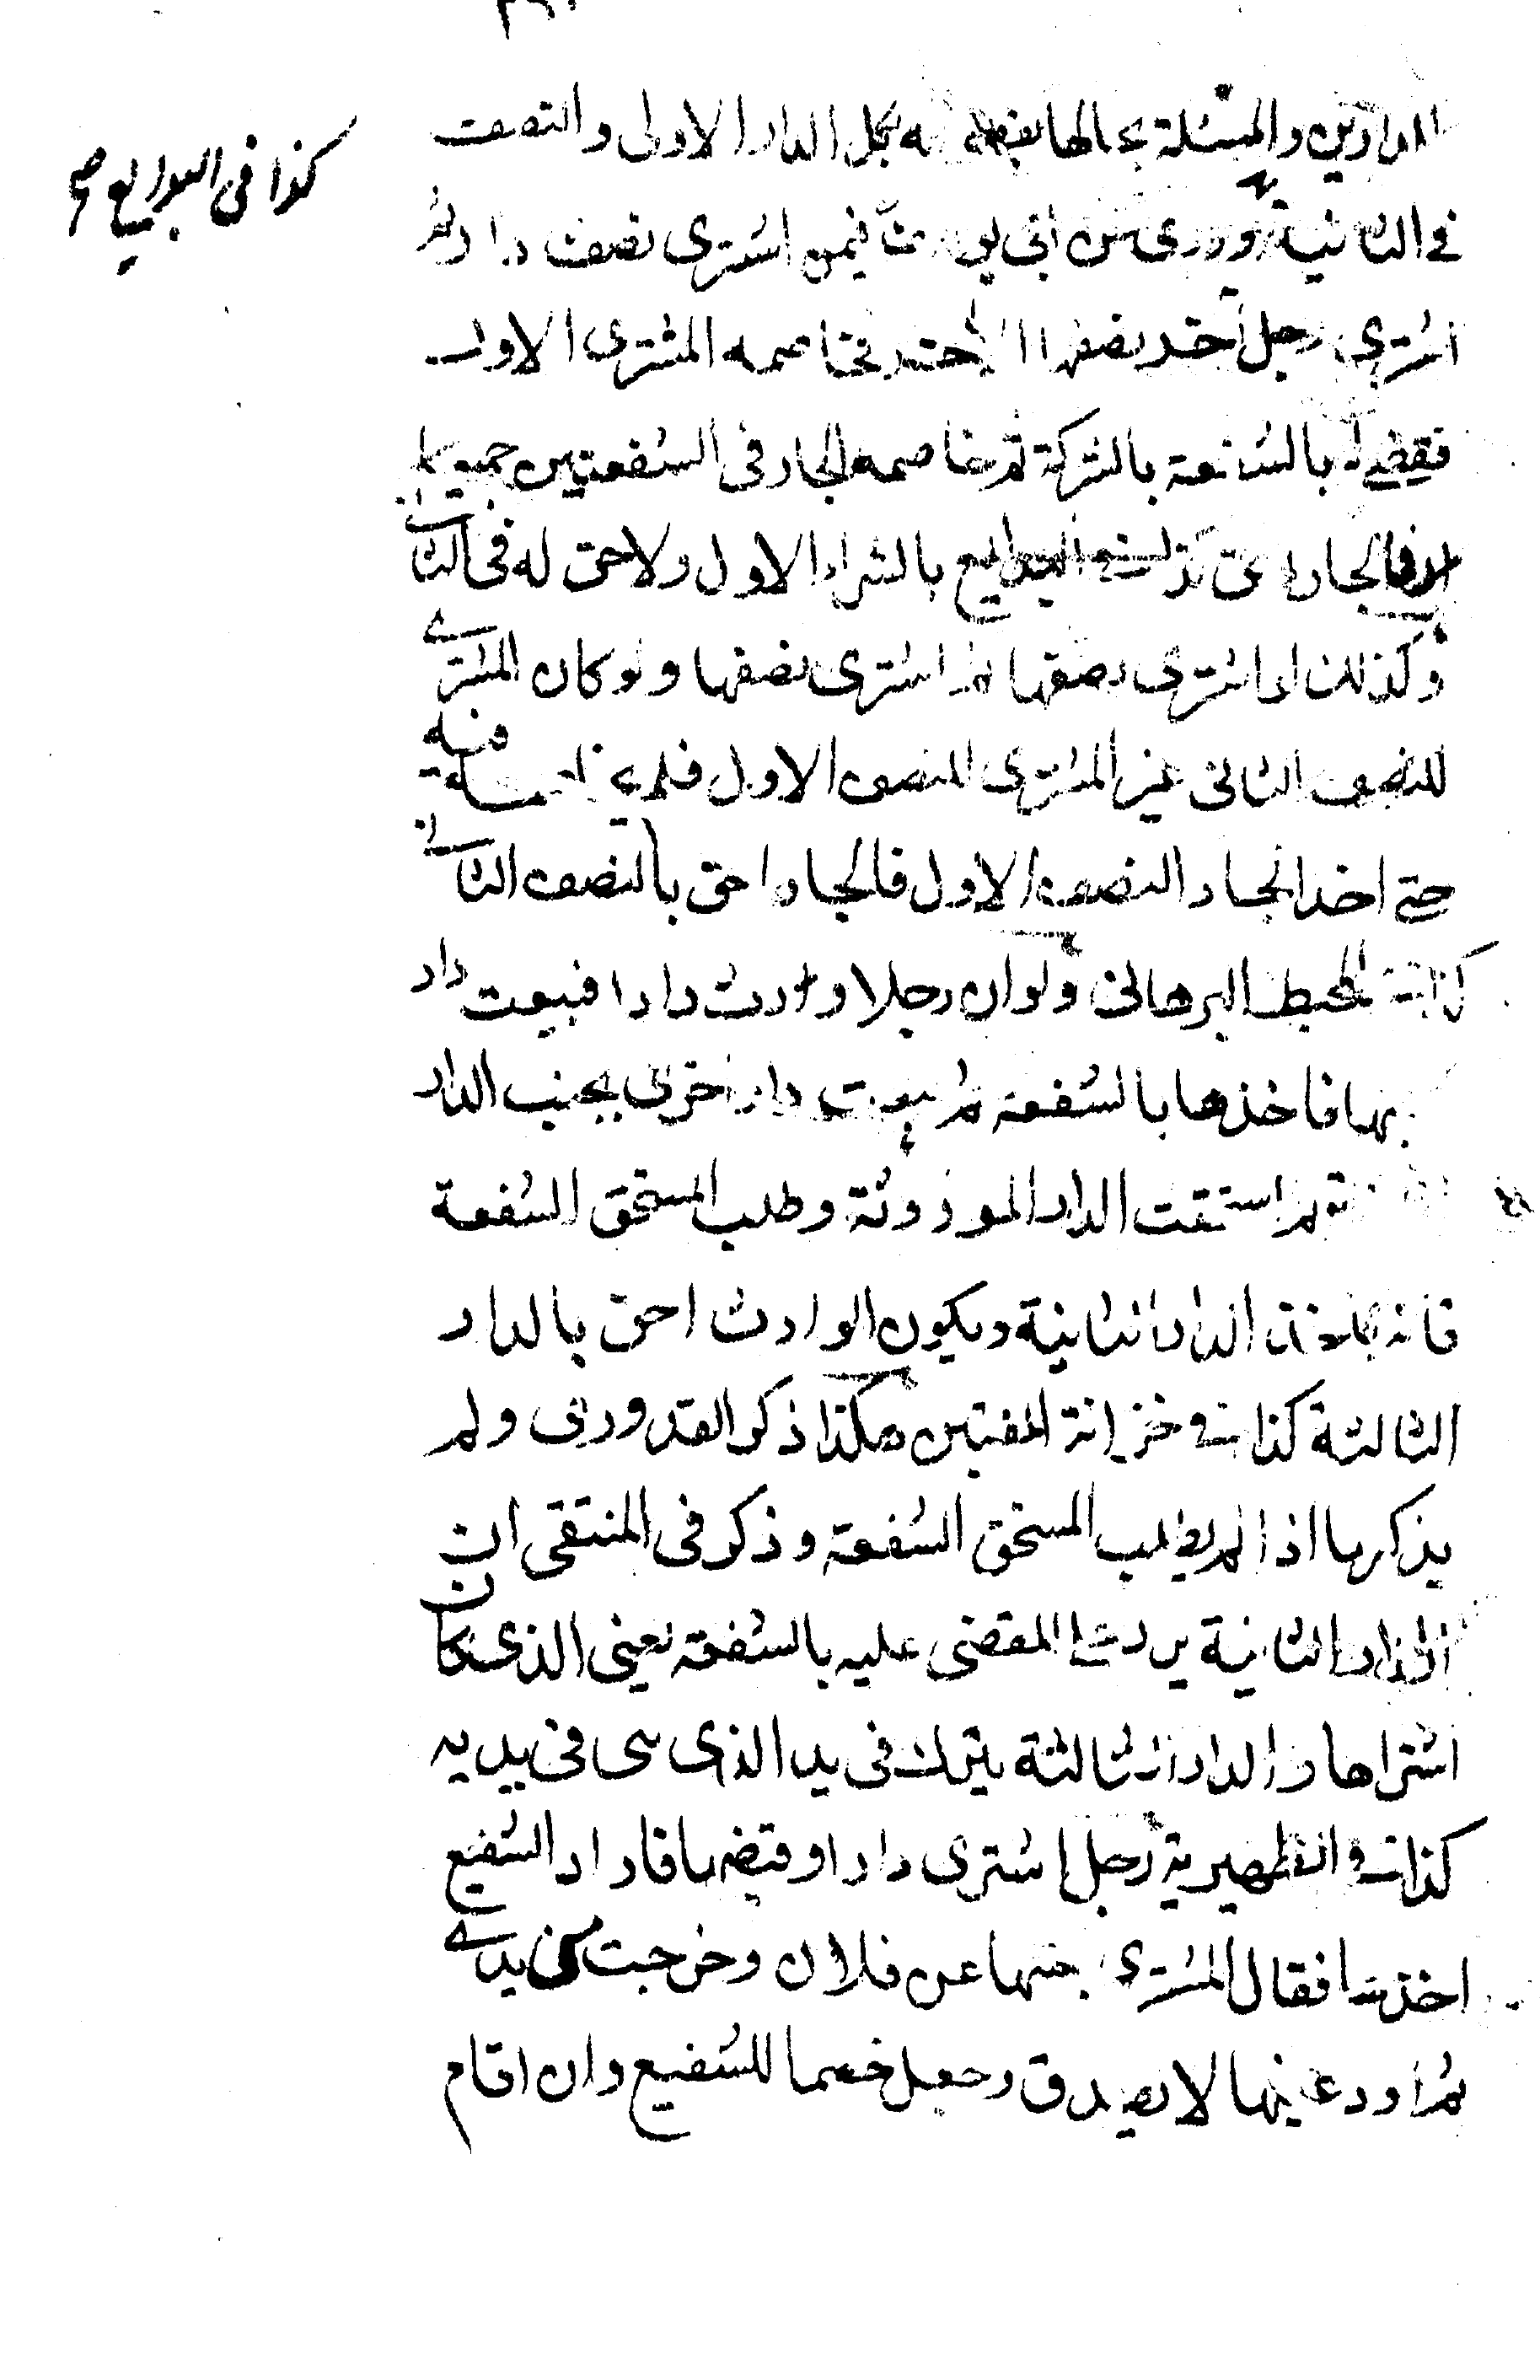 الدارين والمسئلة بحالها يقضى له بكل الدار الاولى والنصف
كذا فى البدايع صح
فى الثانية وروى عن ابى يوسف فيمن اشترى نصف دار ثم
اشترى رجل آخر نصفها الآخر فخاصمه المشترى الاول
فقضى له بالشفعة بالشركة ثم خاصمه الجار فى الشفعتين جميعا
فالجار احق بالشراء الاول ولا حق له فى الثانى
وكذلك لو اشترى نصفها ثم اشترى نصفها ولو كان المشترى
للنصف الثانى غير المشترى للنصف الاول فلم يخاصمه فيه
حتى اخذ الجار النصف الاول فالجار احق بالنصف الثانى
كذا فى المحيط البرهانى ولو ان رجلا ورث دارا فبيعت دار
بجنبها فاخذها بالشفعة ثم بيعت دار اخرى بجنب الدار
الثانية ثم استحقت الدار الموروثة وطلب المستحق الشفعة
فانه ياخذ الدار الثانية ويكون الوارث احق بالدار
الثالثة كذا فى خزانة المفتين هكذا ذكر القدورى ولم
يذكر ما اذا لم يطلب المستحق الشفعة وذكر فى المنتقى ان
الدار الثانية يرد على المقضى عليه بالشفعة يعنى الذى كان
اشتراها والدار الثالثة يترك فى يد الذى هى فى يديه
كذا فى الظهيرية رجل اشترى دارا وقبضها فاراد الشفيع
اخذها فقال المشترى بعتها من فلان وخرجت من يدى
ثم اودعنيها لا يصدق وجعل خصما للشفيع وان اقام